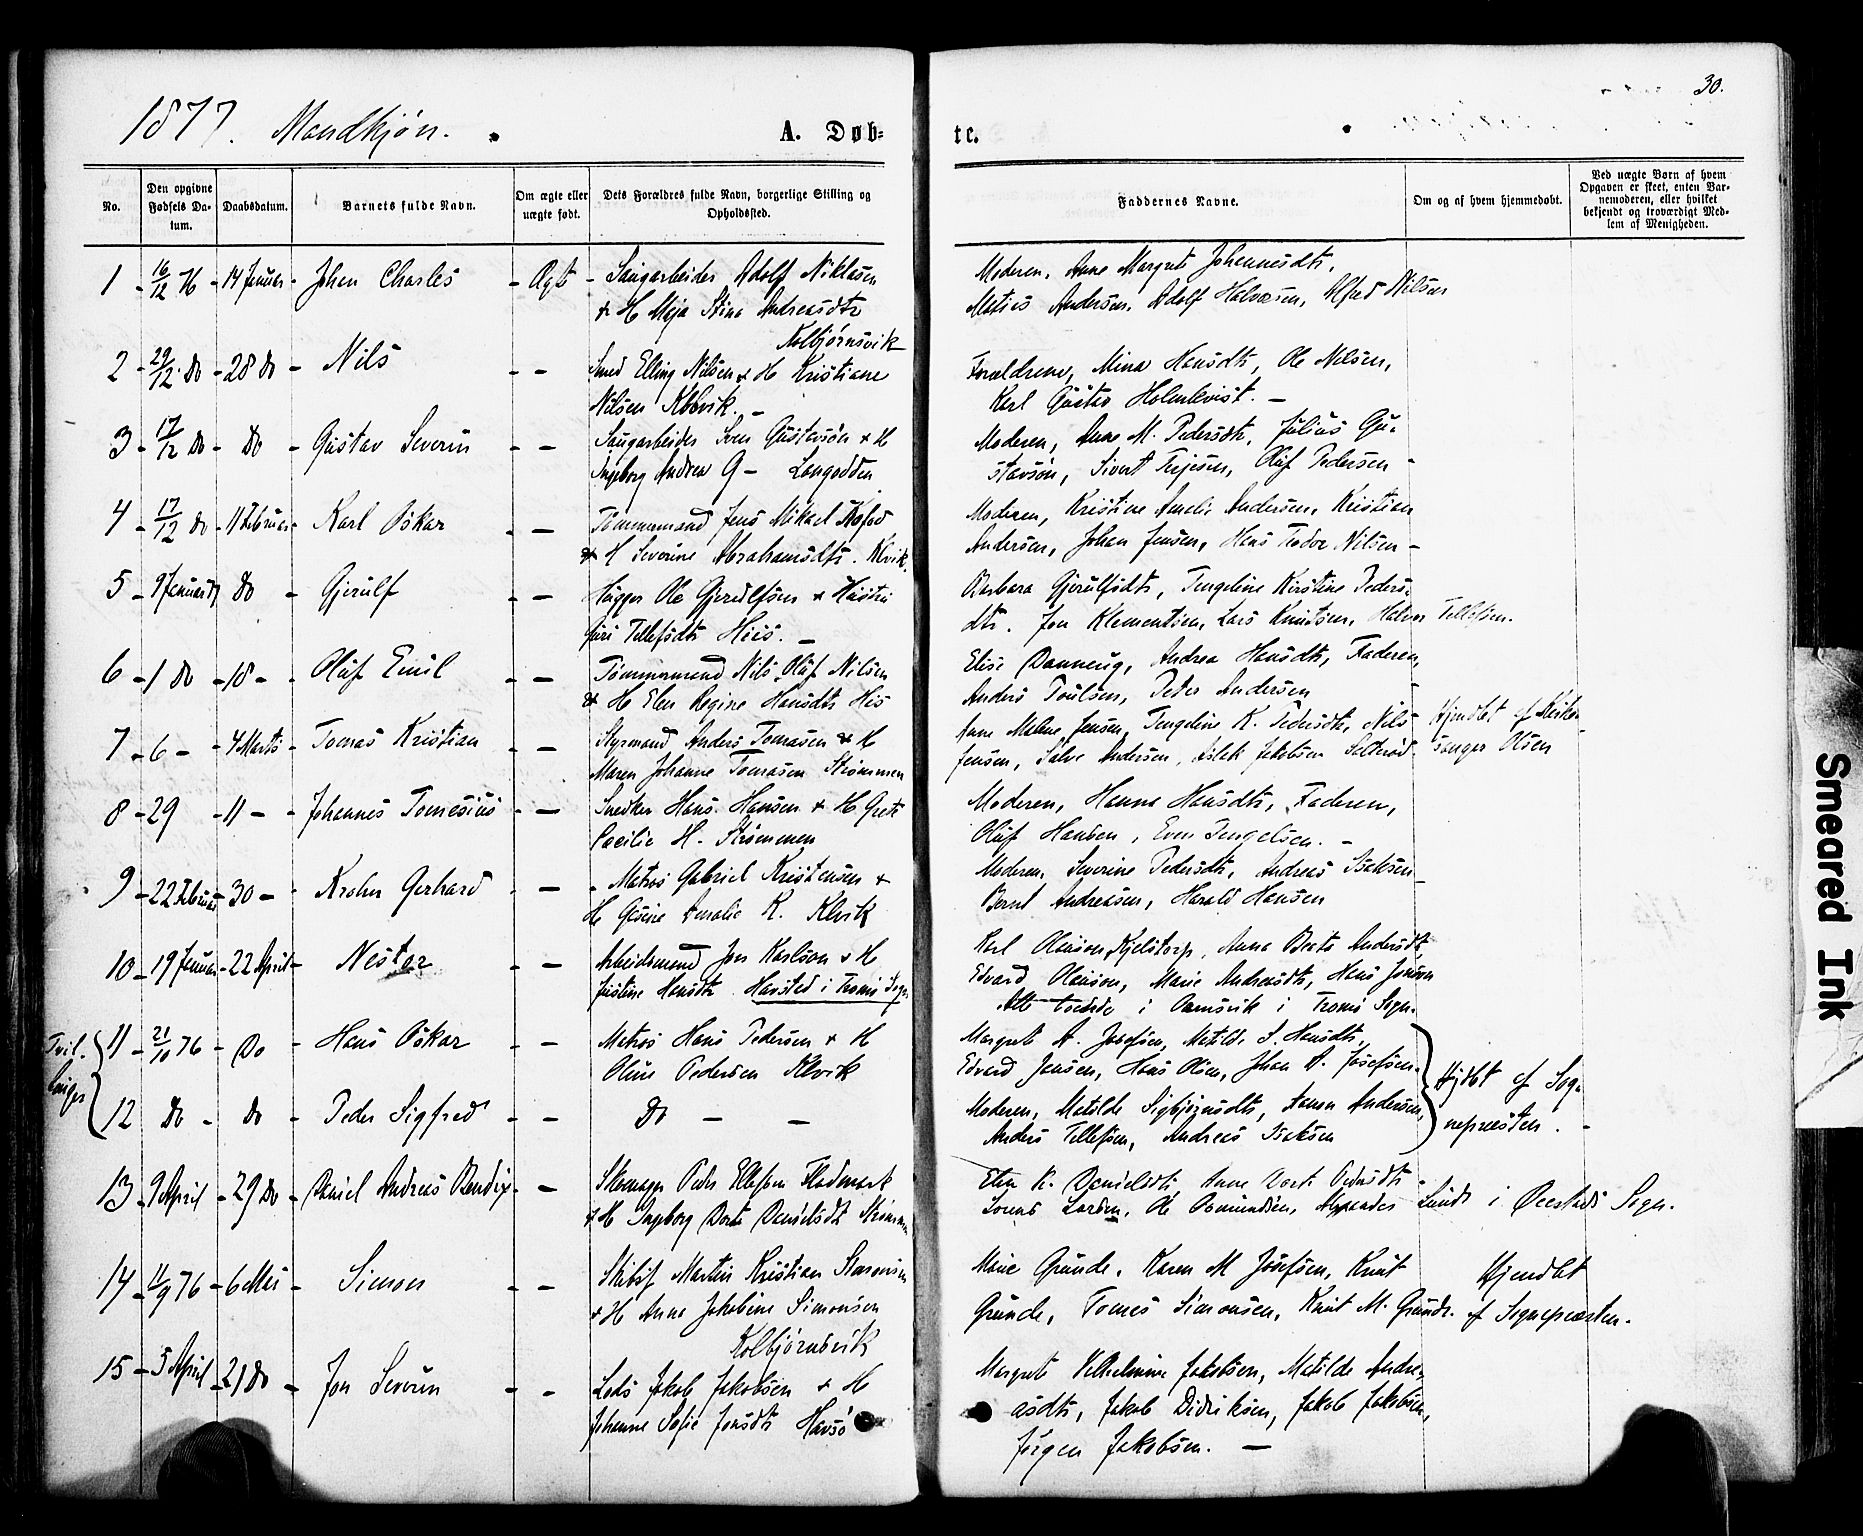 30.
1877. Mandkjøn.
A. Døb=
te.
No.
Den opgivne Fødsels Datum.
Daabsdatum.
Barnets fulde Navn.
Om ægte eller uægte født.
Dets Forældres fulde Navn, borgerlige Stilling og Opholdssted.
Faddernes Navne.
Om og af hvem hjemmedøbt.
Ved uægte Børn af hvem Opgaven er skeet, enten Barnemoderen, eller hvilket bekjendt og troværdigt Medlem af Menigheden.
1 - 16/12 76 - 14 Januar - Johan Charles - Ægt - Saugarbeider Adolf Niklasen
& H Maja Stina Andreasdtr
Kolbjørnsvik
Moderen, Anne Margrete Johannesdtr,
Matias Andersen, Adolf Halvorsen, Alfred Nilsen
2 - 29/12 Do - 28 Do - Nils - - Smed Elling Nilsen & H Kristiane
Nilsen Kbvik. -
Forældrene, Mina Hansdtr, Ole Nilsen,
Karl Gustav Holmkvist. -
3 - 17/12 Do - Do - Gustav Severin - - Saugarbeider Sven Gustavsøn & H
Ingeborg Andrea G - Langodden
Moderen, Anne M. Pedersdtr, Julius Gu-
stavsøn, Sivert Terjesen, Oluf Pedersen -
4 - 17/12 Do - 11 Februar - Karl Oskar - - Tømmermand Jens Mikael Kofod
& H Severine Abrahamsdtr. Klvik.
Moderen, Kristine Amelie Andersen, Kristian
Andersen, Johan Jensen, Hans Teodor Nilsen -
5 - 9 Januar 77 Do - Gjerulf - - Ole Gjerulfsen & Hustru
Siri Tellefsdtr Hiis. -
Barbara Gjerulfsdtr, Tengeline Kirstine Peders-
dtr. Jon Klementsen, Lars Knudsen, Halvor Tellefsen.
6 - 1 Do - 18 - - Oluf Emil - - Tømmermand Nils Oluf Nilsen
& H Elen Regine Hansdtr His
Elise Dannevig, Andrea Hansdtr, Faderen,
Anders Poulsen, Peder Andersen
7 - 6 - - 4 Marts - Tomas Kristian - - Styrmand Anders Tomasen & H
Maren Johanne Tomasen Strømmen
Anne Malene Jensen, Tengeline K. Pedersdtr, Nils
Jensen, Salve Andersen, Aslak Jakobsen Salterød.
Hjemdbt af Kirke-
sanger Olsen
8 - 29 - 11 - - Johannes Tomesius - - Snedker Hans Hansen & H Grete
Cecilie H. Strømmen
Moderen, Hanna Hansdtr, Faderen,
Oluf Hansen, Even Tengelsen. -
9 - 22 Februar - 30 - - Krohn Gerhard - - Matros Gabriel Kristensen &
H Gusine Amalie K. Klvik
Moderen, Severine Pedersdtr, Andreas Isaksen
Bernt Andreasen, Harald Hansen
10 - 19 Januar - 22 April - Nestor - - Arbeidsmand Jon Karlson & H
Justine Hansdtr Harsted i Tromø Sogn
Karl Olausen Kjelstorp, Anna Beate Andersdt
Edvard Olausen, Marie Andreasdtr, Hans Jonsen
Alle i Tromø Sogn.
Tvil-
linger
11 - 21/10 76 - Do - Hans Oskar - - Matros Hans Pedersen & H
Oline Pedersen Klvik
Margrete A. Josefsen, Matilde S. Hansdtr,
Edvard Jensen, Hans Olsen, Johan A. Josefsen.
Hjdbt af Sog-
nepræsten. -
12 Do - Do - Peder Sigfred - - Do - -
Moderen, Matilde Sigbjørnsdtr, Aanon Andersen,
Anders Tellefsen, Andreas Isaksen
13 - 9 April - 29 Do - Daniel Andreas Bendix - - Skomager Peder Ellefsen Flademark
& H Ingeborg Dorte Danielsdtr Strømmen
Elen K. Danielsdtr, Anne Dorte Pedersdtr
Larsen, Ole Osmundsen, Lunde i Øiestads Sogn.
14 - 11/9 76 - 6 Mai - Simon - - Skibsf Martin Kristian Simonsen
& H Anne Jakobine Simonsen
Kolbjørnsvik
Marie Grunde, Karen M Josefsen, Knut
Grunde, Tomas Simonsen, Knut M. Grunde.
Hjemdbt
af Sognepræsten.
15 - 5 April - 21 Do - Jon Severin - - Lods Jakob Jakobsen & H
Johanne Sofie Jonsdtr Havsø
Margrete Vilhelmine Jakobsen, Matilde Andre-
asdtr, Jakob Didriksen, Jakob Jakobsen,
Jørgen Jakobsen. -
Smeared Ink